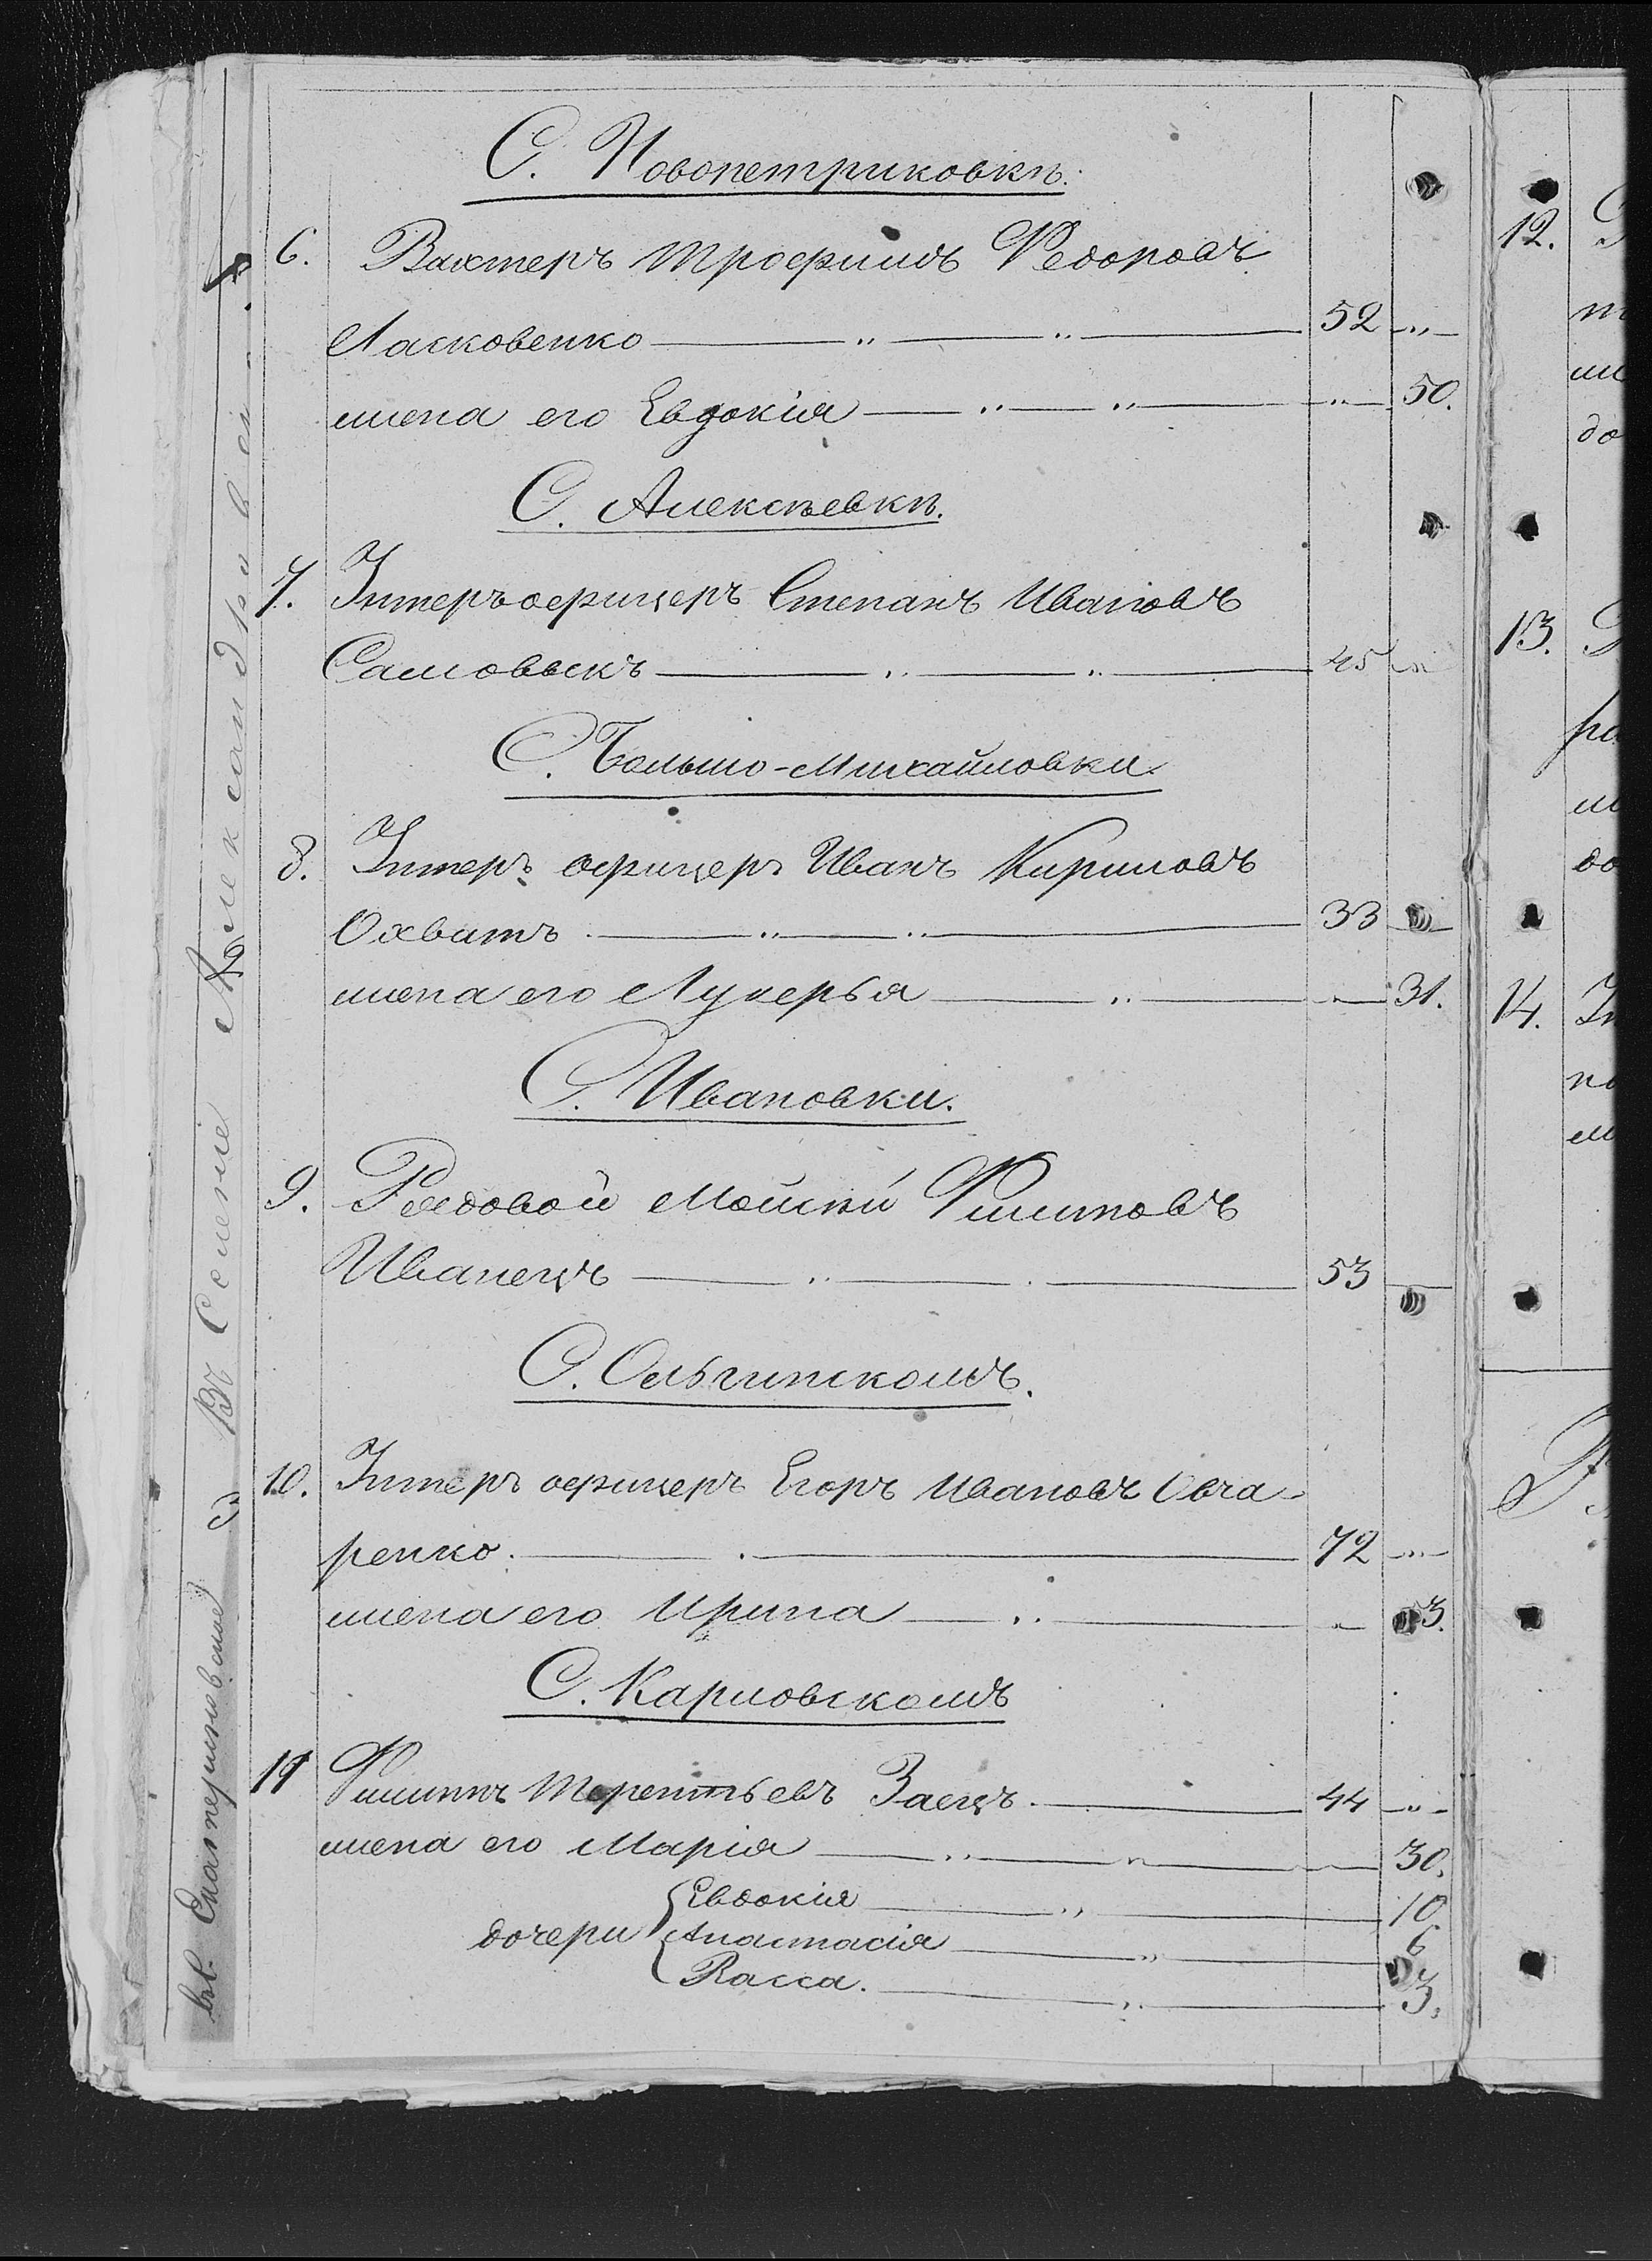 С. Новопетриковкѣ.
6. Вахтеръ Трофимъ Федоровъ
Ласковенко — " — " — 52 — " —
жена его Евдокія — " — " — " — 50.
С. Алексѣевкѣ.
7. Унтеръ офицеръ Степанъ Ивановъ
Самовыкъ — " — " — 45
С. Больше-Михайловки.
8. Унтеръ офицеръ Иванъ Кириловъ
Охватъ — " — " — 33
жена его Лукерья — " — " — 31.
С. Ивановки.
9. Рядовой Мойсѣй Филиповъ
Иванецъ — " — 53
С. Ольгинскомъ.
10. Унтеръ офицеръ Егоръ Ивановъ Овча-
ренко. — 72 — " —
жена его Ирина — " — " — 3.
С. Карловскомъ
11 Филипъ Терентьевъ Заецъ. — 44 — " —
жена его Марія — " — " — 30.
дочери { Евдокія — " — 10.
Анастасія — " — 6
Васса. — " — 3.
Въ Селеніе Александро
12.
13.
14.